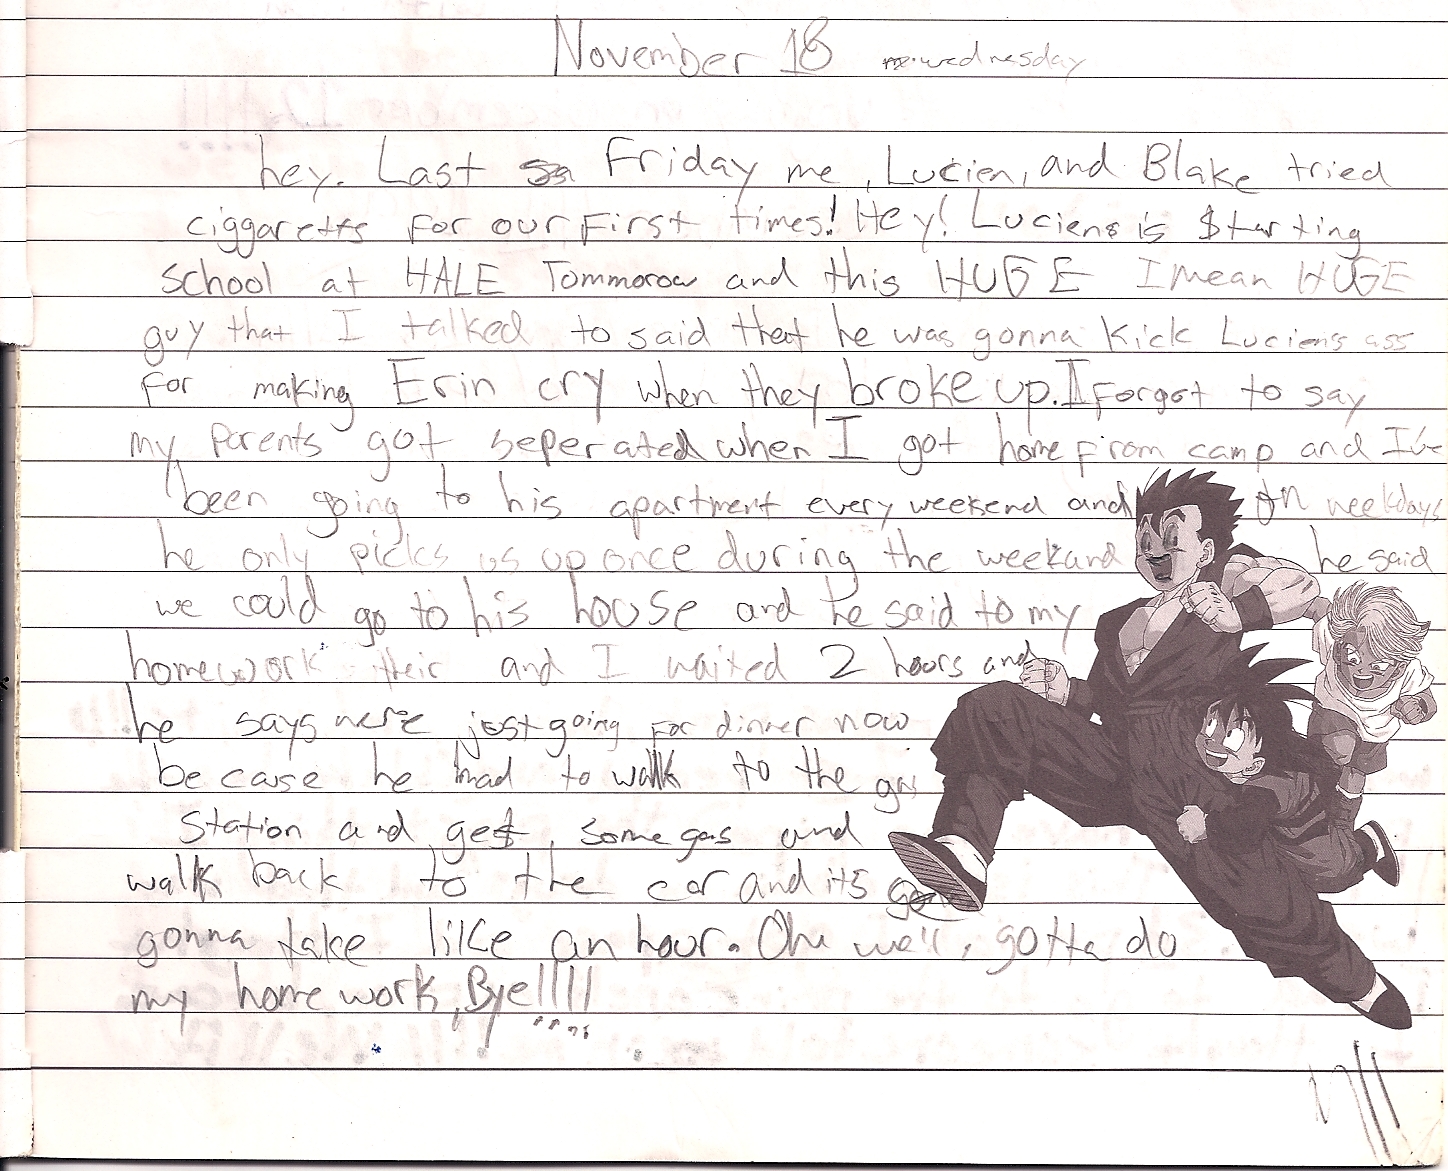 November 18 wednesday
hey. Last Friday me, Lucien, and Blake tried
ciggaretts for our first times! Hey! Luciens is $tarting
school at HALE Tommorow and this HUGE I mean HUGE
guy that I talked to said that he was gonna kick Luciens ass
for making Erin cry when they broke up. I forgot to say
my parents got seperated when I got home from camp and I've
been going to his apartment every weekend and on weekdays
he only picks us up once during the weekand he said
we could go to his house and he said to my
homework their and I waited 2 hours and
he says were just going for dinner now
becase he had to walk to the gas
station and get some gas and
walk back to the car and its
gonna take like an hour. Oh well, gotta do
my homework, Bye!!!!